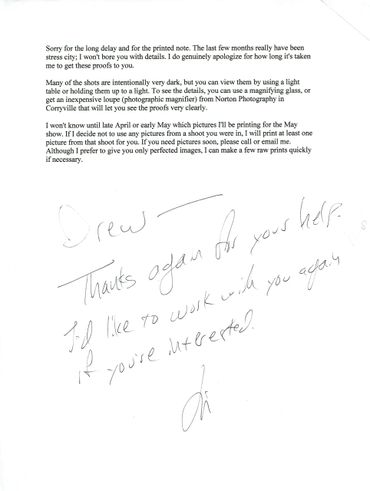 Sorry for the long delay and for the printed note. The last few months really have been
stress city; I won't bore you with details. I do genuinely apologize for how long it's taken
me to get these proofs to you.
Many of the shots are intentionally very dark, but you can view them by using a light
table or holding them up to a light. To see the details, you can use a magnifying glass, or
get an inexpensive loupe (photographic magnifier) from Norton Photography in
Corryville that will let you see the proofs very clearly.
I won't know until late April or early May which pictures I'll be printing for the May
show. If I decide not to use any pictures from a shoot you were in, I will print at least one
picture from that shoot for you. If you need pictures soon, please call or email me.
Although I prefer to give you only perfected images, I can make a few raw prints quickly
if necessary.
Drew —
Thanks again for your help.
I'd like to work with you again
if you're interested.